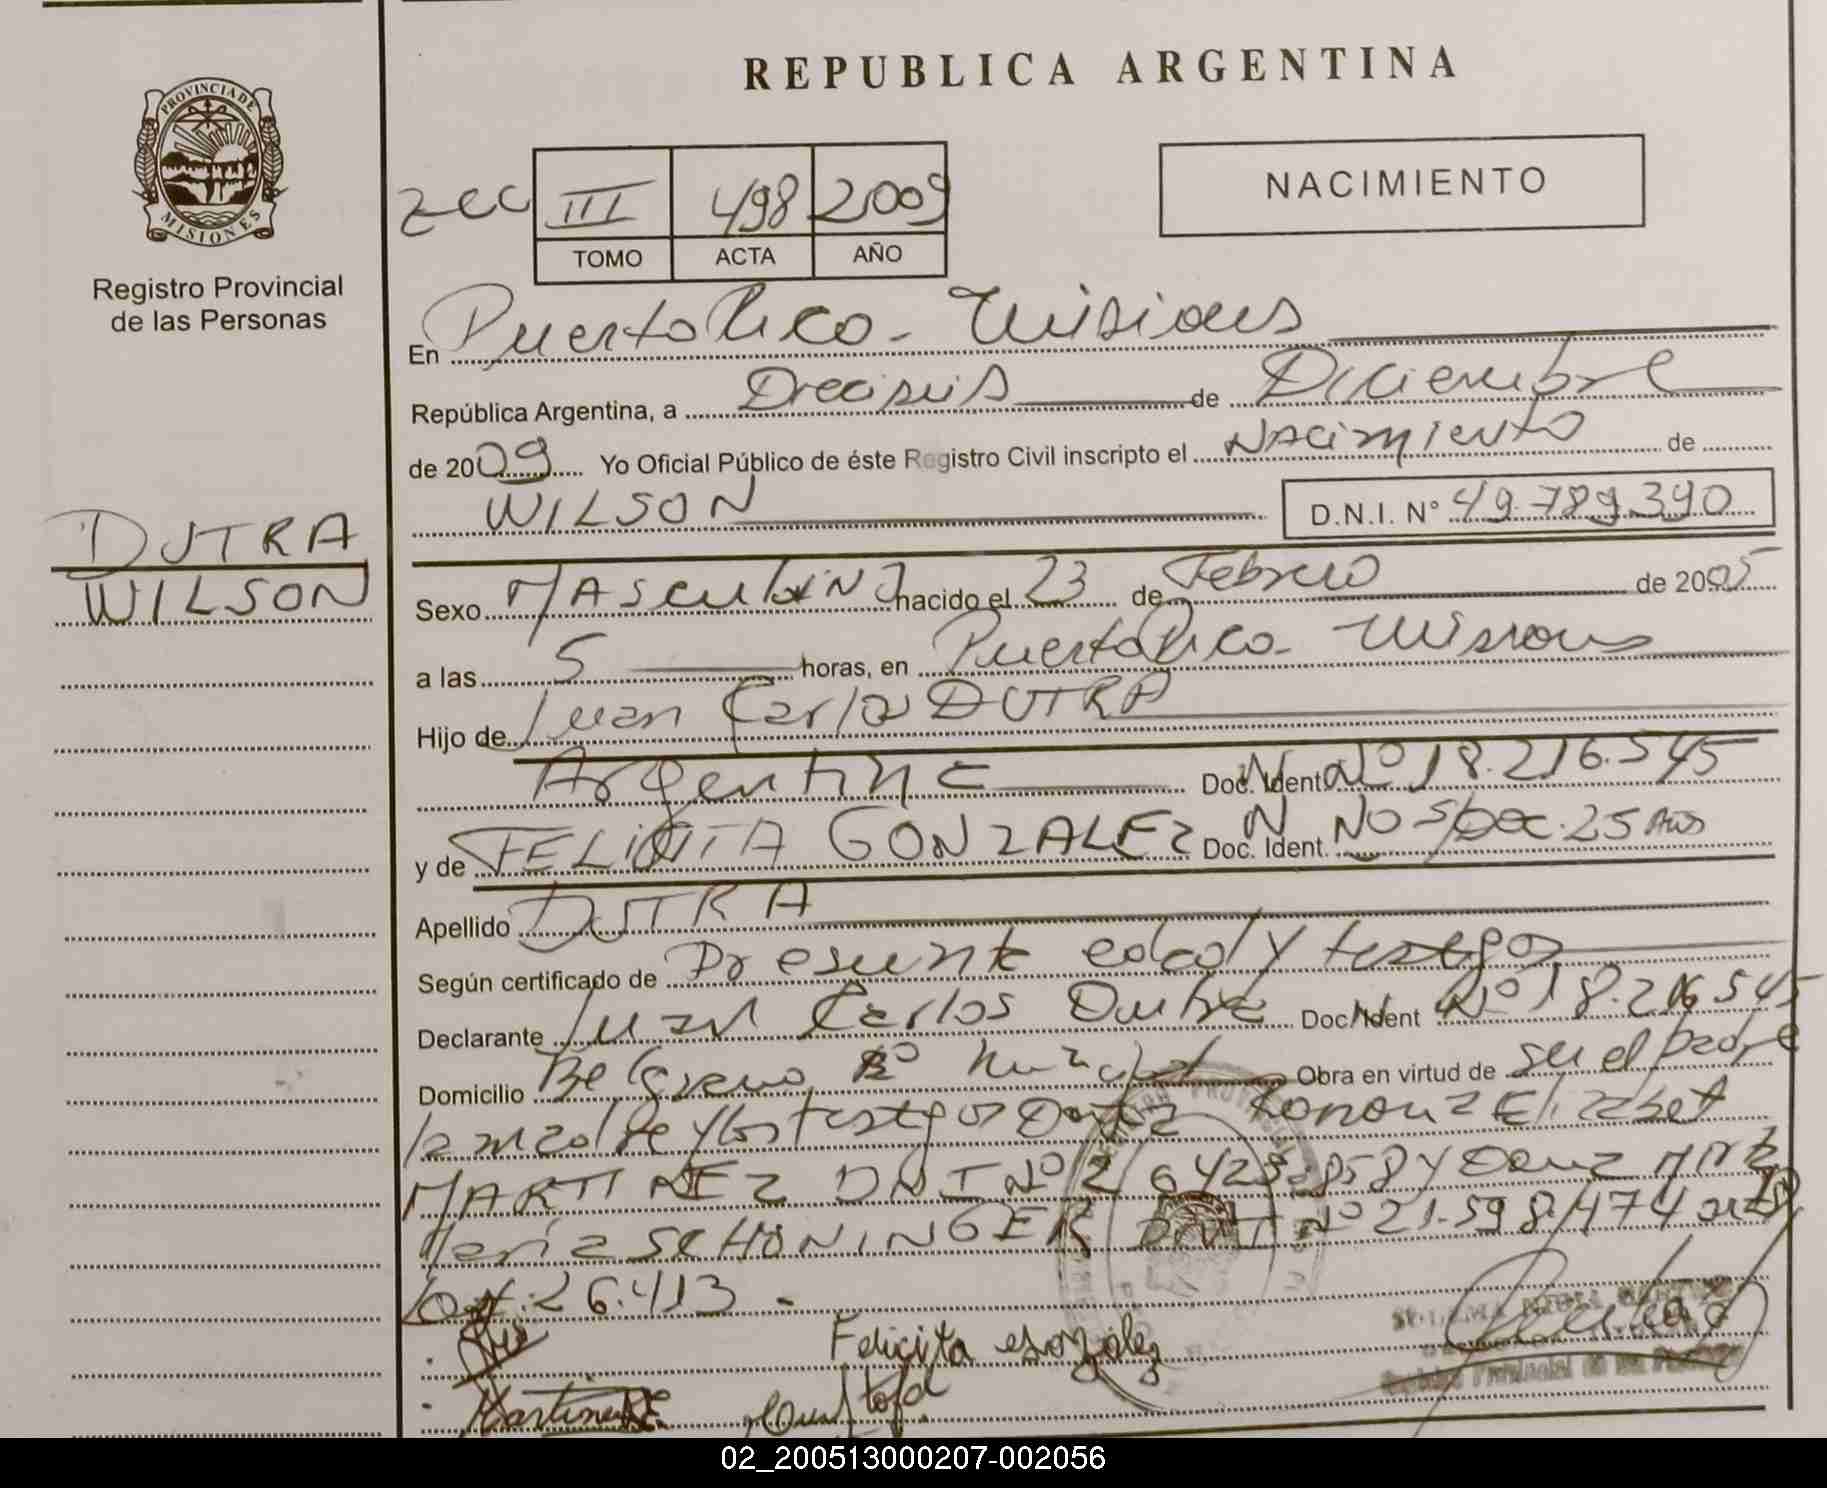 REPUBLICA ARGENTINA
PROVINCIA DE MISIONES
Registro Provincial
de las Personas
NACIMIENTO
III 498 2009
TOMO ACTA AÑO
En Puerto Rico - Misiones
República Argentina, a Dieciseis de Diciembre
de 2009 Yo Oficial Público de éste Registro Civil inscripto el Nacimiento de
WILSON D.N.I. N° 49.789.390
DUTRA
WILSON
Sexo MASculiNo nacido el 23 de Febrero de 2005
a las 5 horas, en Puerto Rico - Misiones
Hijo de Juan Carlos DUTRA
Argentina Doc. Ident. N° 18.216.545
y de FELICITA GONZALEZ Doc. Ident. No s/Doc. 25 años
Apellido DUTRA
Según certificado de Presunta edad y testigos
Declarante Juan Carlos Dutra Doc. Ident N° 18.216.545
Domicilio Belgrano Obra en virtud de ser el padre
la madre y los testigos Elizabet
MARTINEZ DNI N° 26.423.858 y
María SCHONINGER DNI N° 21.598.474
26.413 -
Felicita gonzalez
Martinez